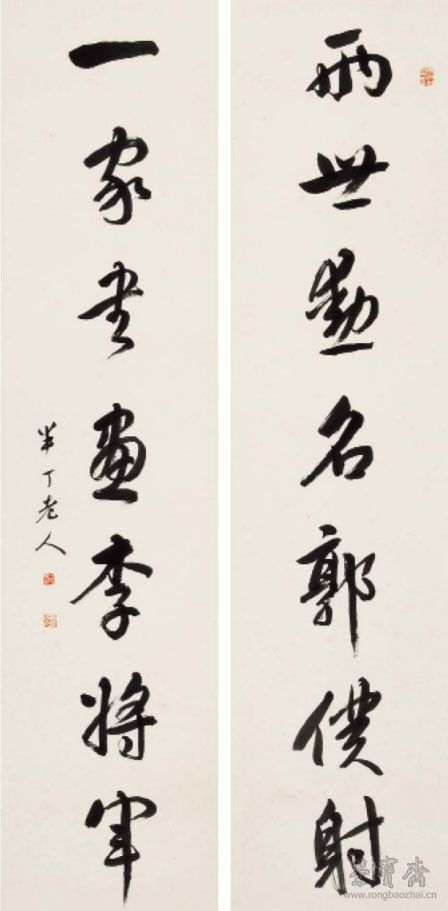 兩世勳名郭僕射
一家書畫李將軍
半丁老人
榮寶齋
www.rongbaozhai.cn